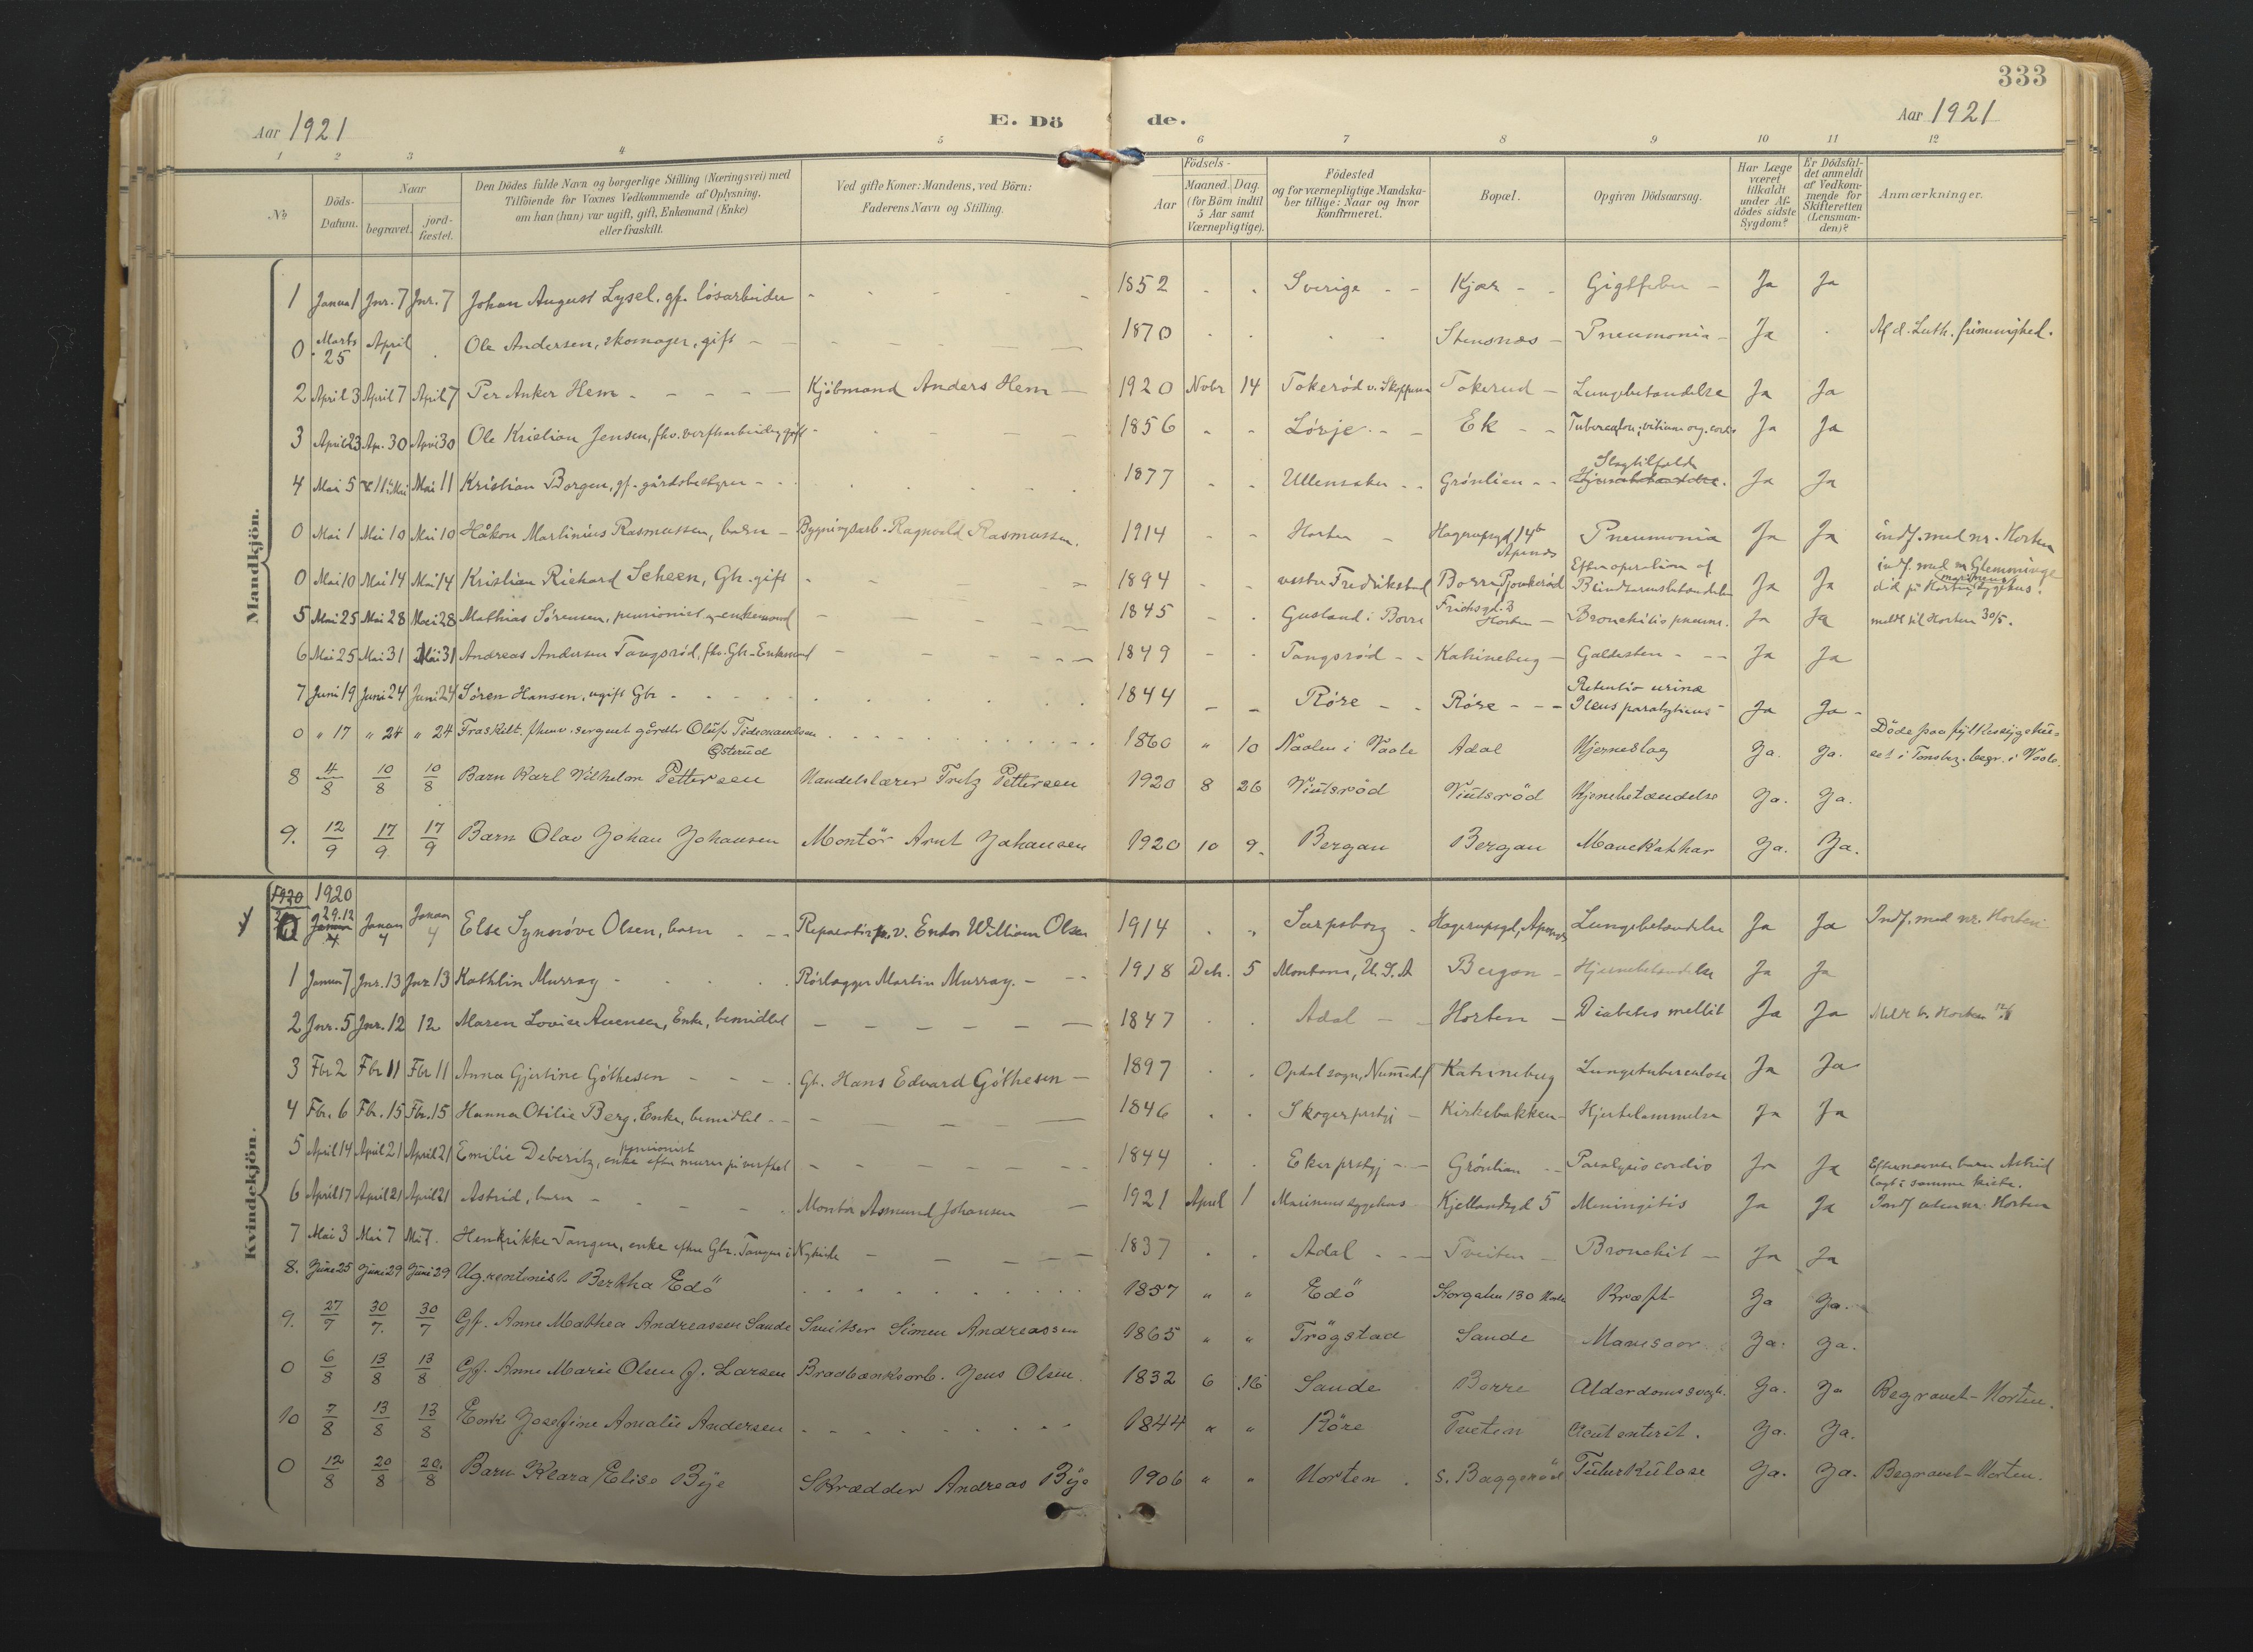 333
Aar 1921
E. Dö de.
Aar 1921
1 2 3 4 5 6 7 8 9 10 11 12
No
Döds-Datum.
Naar
begravet.
jord-fæstet.
Den Dödes fulde Navn og borgerlige Stilling (Næringsvei) med
Tilföiende for Voxnes Vedkommende af Oplysning,
om han (hun) var ugift, gift, Enkemand (Enke)
eller fraskilt.
Ved gifte Koner: Mandens, ved Börn:
Faderens Navn og Stilling.
Födsels-
Aar
Maaned. Dag.
(for Börn indtil
5 Aar samt
Værnepligtige).
Födested
og for værnepligtige Mandska-
ber tillige: Naar og hvor
konfirmeret.
Bopæl.
Opgiven Dödsaarsag.
Har Læge
været
tilkaldt
under Af-
dödes sidste
Sygdom?
Er Dödsfal-
det anmeldt
af Vedkom-
mende for
Skifteretten
(Lensman-
den)?
Anmærkninger.
Mandkjön.
1 Janua 1 Jnr. 7 Jnr. 7 Johan August Lysel, gf. løsarbeider 1852 Sverige Kjær Gigtfeber Ja Ja
0 Marts 25 April 1 Ole Andersen, skomager, gift 1870 Stensnæs Pneumonia Ja Af d. Luth. frimenighed.
2 April 3 April 7 April 7 Per Anker Hem Kjöbmand Anders Hem 1920 Nobr 14 Tokerød v. Skoppum Tokerud Lungebetændelse Ja Ja
3 April 23 Ap. 30 April 30 Ole Kristian Jensen, fhv. verftsarbeider, gift 1856 Lørje Ek Ja Ja
4 Mai 5 11 Mai Mai 11 Kristian Borgen, gf. gårdsbestyrer 1877 Ullensaker Grønlien Slagtilfælde Ja Ja
0 Mai 1 Mai 10 Mai 10 Håkon Martinius Rasmussen, barn Bygningsarb. Ragnvald Rasmussen. 1914 Horten Hagerupsgd, 14b Apenæs Pneumonia Ja Ja indf. med nr. Horten
0 Mai 10 Mai 14 Mai 14 Kristian Richard Scheen, Gbr. gift 1894 vestre Fredrikstad Borre, Efter operation af Blindtarmsbetændelse Ja Ja indf. med nr Glemminge
død på Horten marinens sygehus.
5 Mai 25 Mai 28 Mai 28 Mathias Sørensen, pensionist, enkemand 1845 Gusland i Borre Frichsgd. 3 Horten Bronchitis pneum. Ja Ja meldt til Horten 30/5.
6 Mai 25 Mai 31 Mai 31 Andreas Andersen Tangsrød, fhv. Gbr. Enkemand 1849 Tangsrød Katrineberg Galdesten Ja Ja
7 Juni 19 Juni 24 Juni 24 Søren Hansen, ugift Gbr 1844 Røre Røre Retentio urinæ Ileus paralyticus Ja Ja
0 " 17 " 24 " 24 Fraskilt. forhenv. sergent gårdbr Oluf Tidemandsen Österud 1860 " 10 Naalen i Vaale Adal Hjerneslag Ja. Ja. Döde paa fylkessygehu-
set i Tønsbrg. begr. i Vaale.
8 4/8 10/8 10/8 Barn Karl Vilhelm Pettersen Handelslærer Fritz Pettersen 1920 8 26 Viulsröd Viulsröd Hjernebetændelse Ja. Ja.
9. 12/9 17/9 17/9 Barn Olav Johan Johansen Montör Arnt Johansen 1920 10 9. Bergan Bergan Mavekathar Ja. Ja.
Kvindekjön.
0 1920 29.12 Januar 4 Januar 4 Else Synnøve Olsen, barn Endor William Olsen 1914 Sarpsborg Hagerupsgd, Apenæs Lungebetændelse Ja Ja Indf. med nr. Horten
1 Januar 7 Jnr. 13 Jnr. 13 Kathlin Murray Rørlægger Martin Murray. 1918 Deb. 5 Montana, U.S.A Bergan Hjernebetændelse Ja Ja
2 Jnr. 5 Jnr. 12 12 Maren Lovise Avensen, Enke, bemidlet 1847 Adal Horten Diabetes mellit Ja Ja Meldt t. Horten
3 Fbr 2 Fbr 11 Fbr 11 Anna Gjertine Gøthesen Gbr. Hans Edvard Gøthesen 1897 Opdal sogn, Numedal Katrineberg Lungetuberculose Ja Ja
4 Fbr. 6 Fbr. 15 Fbr. 15 Hanna Otilie Berg, Enke, bemidlet 1846 Skoger prstgj Kirkebakken Hjertelammelse Ja Ja
5 April 14 April 21 April 21 Emilie Deberitz, pensionist enke efter murer på verftet 1844 Eker prstgj Grønlien Paralysis cordis Ja Ja Efternævnte barn Astrid
lagt i samme kiste.
6 April 17 April 21 April 21 Astrid, barn Montør Asmund Johansen 1921 April 1 Marinens sygehus Kjellandsgd 5 Meningitis Ja Ja Indf uten nr. Horten
7 Mai 3 Mai 7 Mai 7. Henrikke Tangen, enke efter Gbr. Tangen i Nykirke 1837 Adal Tveiten Bronchit Ja Ja
8. Juni 25 Juni 29 Juni 29 Ug. rentenist. Berthe Edö 1857 " " Edö Storgaten 130 Horten Kræft Ja Ja.
9. 27/7 30/7. 30/7 Gf. Anne Mathea Andreassen Sande Simen Andreassen 1865 " " Trögstad Sande Mavesaar Ja. Ja.
0 6/8 13/8 13/8 Gf. Anne Marie Olsen f. Larsen Jens Olsen. 1832 6 16 Sande Borre Alderdomssvagh. Ja. Ja Begravet - Horten.
10 7/8 13/8 13/8 Enke Josefine Amalie Andersen 1844 " " Röre Tveten Acut enterit. Ja. Ja.
0 12/8 20/8 20./8 Barn Klara Elise Bye Skrædder Andreas Bye 1906 " " Horten S. Baggeröd Tuberkulose Ja. Ja. Begravet - Horten.